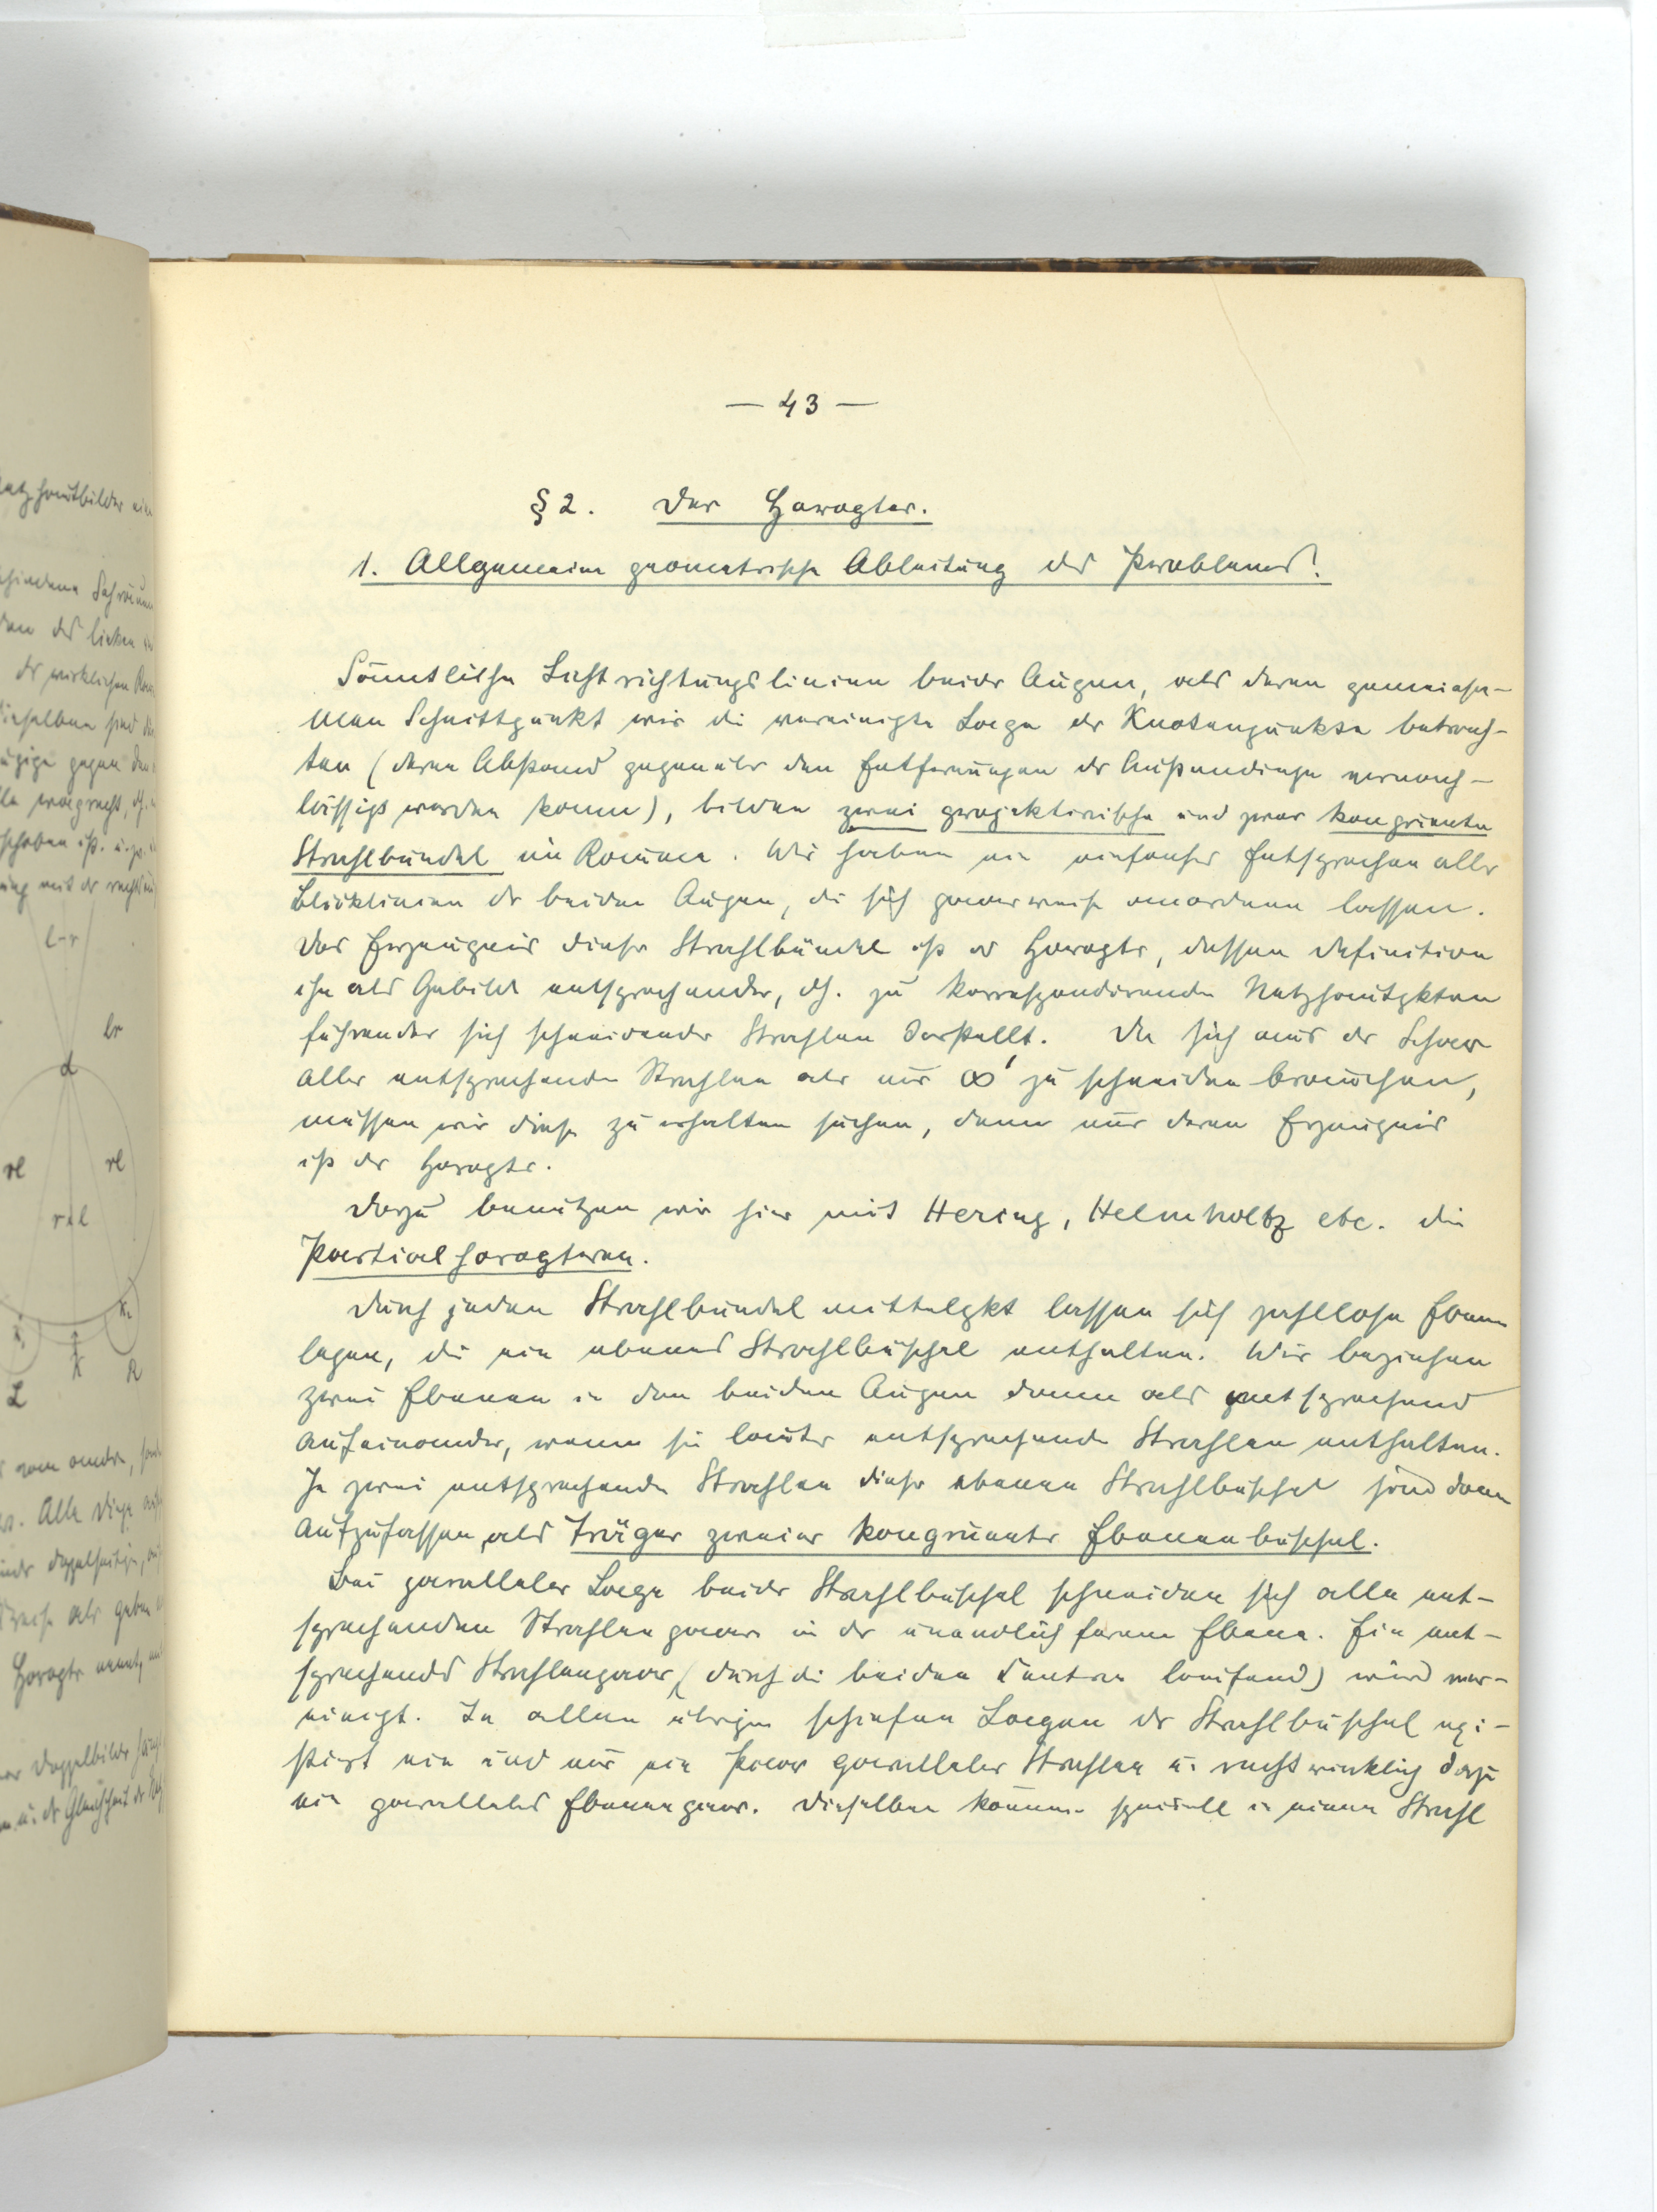 — 43 —
§ 2. Der Horopter.
1. Allgemeine geometrische Ableitung des Problems.
Sämtliche Lichtrichtungslinien beider Augen, als deren gemeinsa-
men Schnittpunkt wir die vereinigte Lage der Knotenpunkte betrach-
ten (deren Abstand gegenüber den Entfernungen der Außendinge vernach-
lässigt werden kann), bilden zwei projektivische und zwar kongruente
Strahlbündel im Raume. Wir haben ein einfaches Entsprechen aller
Blicklinien der beiden Augen, die sich paarweise anordnen lassen.
Das Erzeugnis dieser Strahlbündel ist der Horopter, dessen Definition
ihn als Gebilde entsprechender, dh. zu korrespondirenden Netzhautpkten
führender sich schneidender Strahlen darstellt. Da sich aus der Schaar
aller entsprechenden Strahlen aber nur ∞¹ zu schneiden brauchen,
müssen wir diese zu erhalten suchen, denn nur deren Erzeugnis
ist der Horopter.
Dazu benützen wir hier mit Hering, Helmholtz etc. die
Partialhoropteren.
Durch jeden Strahlbündelmittelpkt lassen sich zahllose Ebenen
legen, die ein ebenes Strahlbüschel enthalten. Wir beziehen
zwei Ebenen in den beiden Augen dann als entsprechend
aufeinander, wenn sie lauter entsprechende Strahlen enthalten.
Je zwei entsprechende Strahlen dieser ebenen Strahlbüschel sind dann
aufzufassen als Träger zweier kongruenter Ebenenbüschel.
Bei paralleler Lage beider Strahlbüschel schneiden sich alle ent-
sprechenden Strahlenpaare in der unendlich fernen Ebene. Ein ent-
sprechendes Strahlenpaar (durch die beiden Centren laufend) wird ver-
einigt. In allen übrigen schiefen Lagen der Strahlbüschel exi-
stirt ein und nur ein Paar paralleler Strahlen u. rechtwinklig dazu
ein paralleles Ebenenpaar. Dieselben können speciell in einen Strahl
l-r
lr
α
rl
rl
r+l
K
L
R